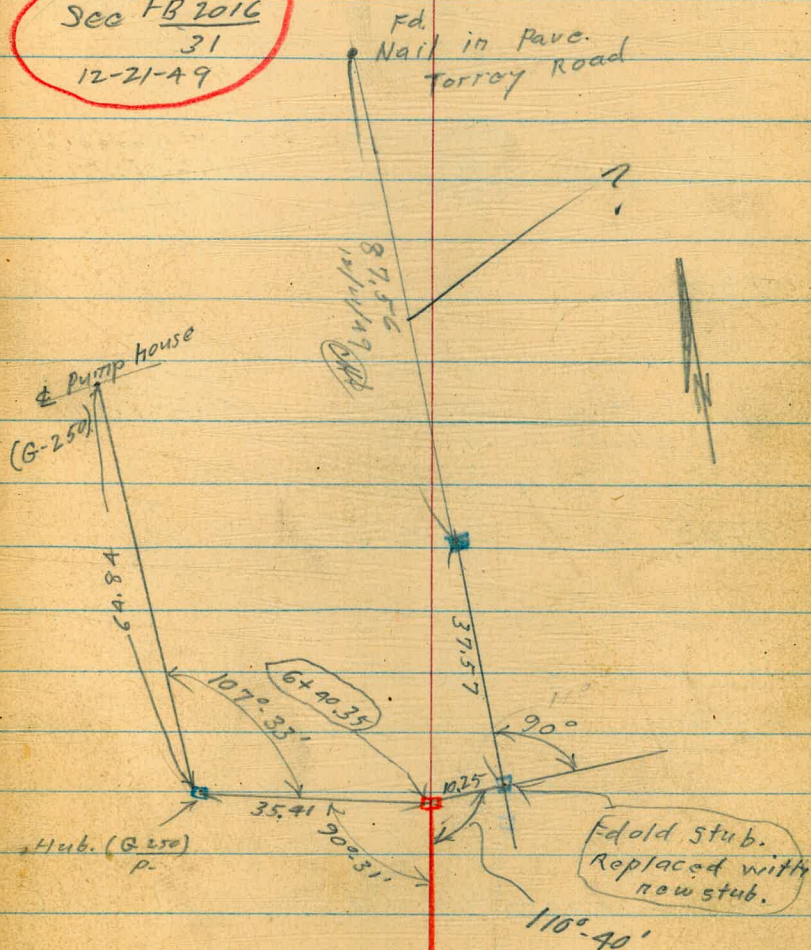 See FB 2016
31
12-21-49
Fd.
Nail in Pave.
Torrey Road
?
87.56
12/21/49
℄ Pump house
(G-250)
N
64.84
37.57
107°-33'
6+40.35
90°
10.25
35.41
90°-31'
Hub. (G 250)
P.
Fd old stub.
Replaced with
new stub.
110°-40'